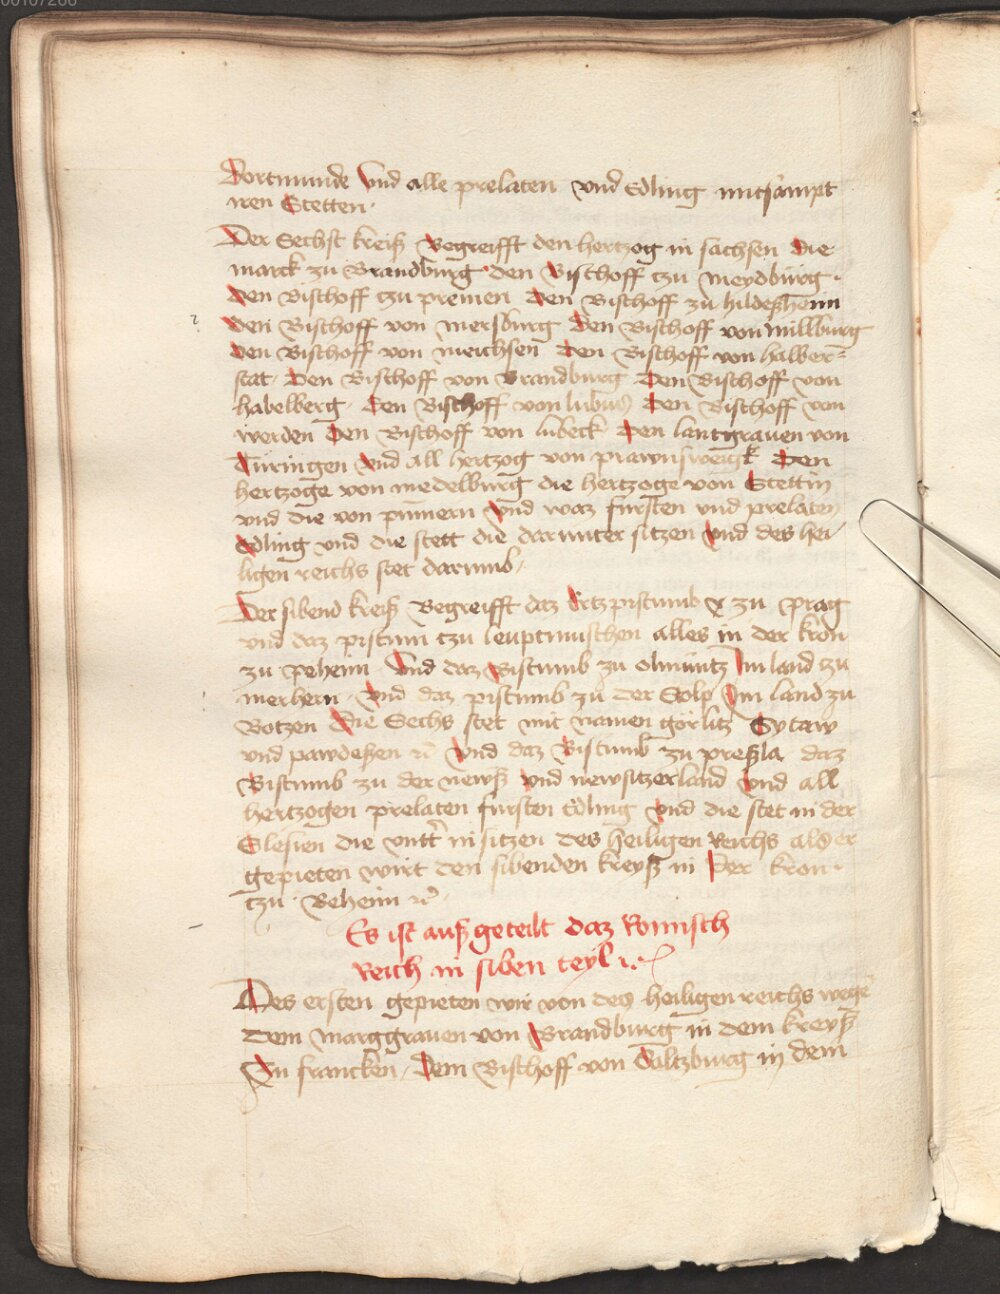 00107266
Dortmunde Und alle prelaten vnd Edling mitsampt
iren Stetten.
Der Sechst kreiß Begreifft den hertzog in sachsen Die
marck zu Brandburg den Bischoff tzu meydburg.
Den Bischoff tzu premen Den Bischoff zu hildeßhenn
Den Bischoff von mersburg Den Bischoff von Millburg
Den Bischoff von meichsen Den Bischoff von halber=
stat. Den Bischoff von Brandburg Den Bischoff von
habelberg. Den Bischoff von lubus Den Bischoff von
werden Den Bischoff von lubeck Den lantgrauen von
Türingen Vnd all hertzog von prawnsweigk Den
hertzoge von medelburg die hertzoge von Stettin
vnd die von pumern Vnd waz fursten vnd prelaten
Edling vnd die stett die darunter sitzen Vnd des hei/
ligen reichs stet darumb/
Der sibend kreiß Begreifft daz Ertzpistumb zu prag
vnd daz pistum tzu leuptmischen alles in der kron
zu pehem Vnd daz Bistumb zu olmüntz Im land zu
merhern. Vnd daz pistumb zu der Golp Im land zu
Botzen Die Sechs stet mit namen görlitz Sytaw
vnd pawdeßen Vnd daz Bistumb zu preßla daz
Bistumb zu der newß Vnd newsitzerland Vnd all
hertzogen prelaten fursten Edling Vnd die stet in der
Slesien die vntt in sitzen des heiligen Reichs als er
gepieten wirt den sibenden kreyß in Der kron.
tzu. Beheim
Es ist auß geteilt daz Romisch
Reich in siben teyl
Des ersten gepieten wir von des heiligen reichs wege
Dem Marggrauen von Brandburg in dem kreyß
Zu francken/ Dem Bischoff von Saltzburg in dem